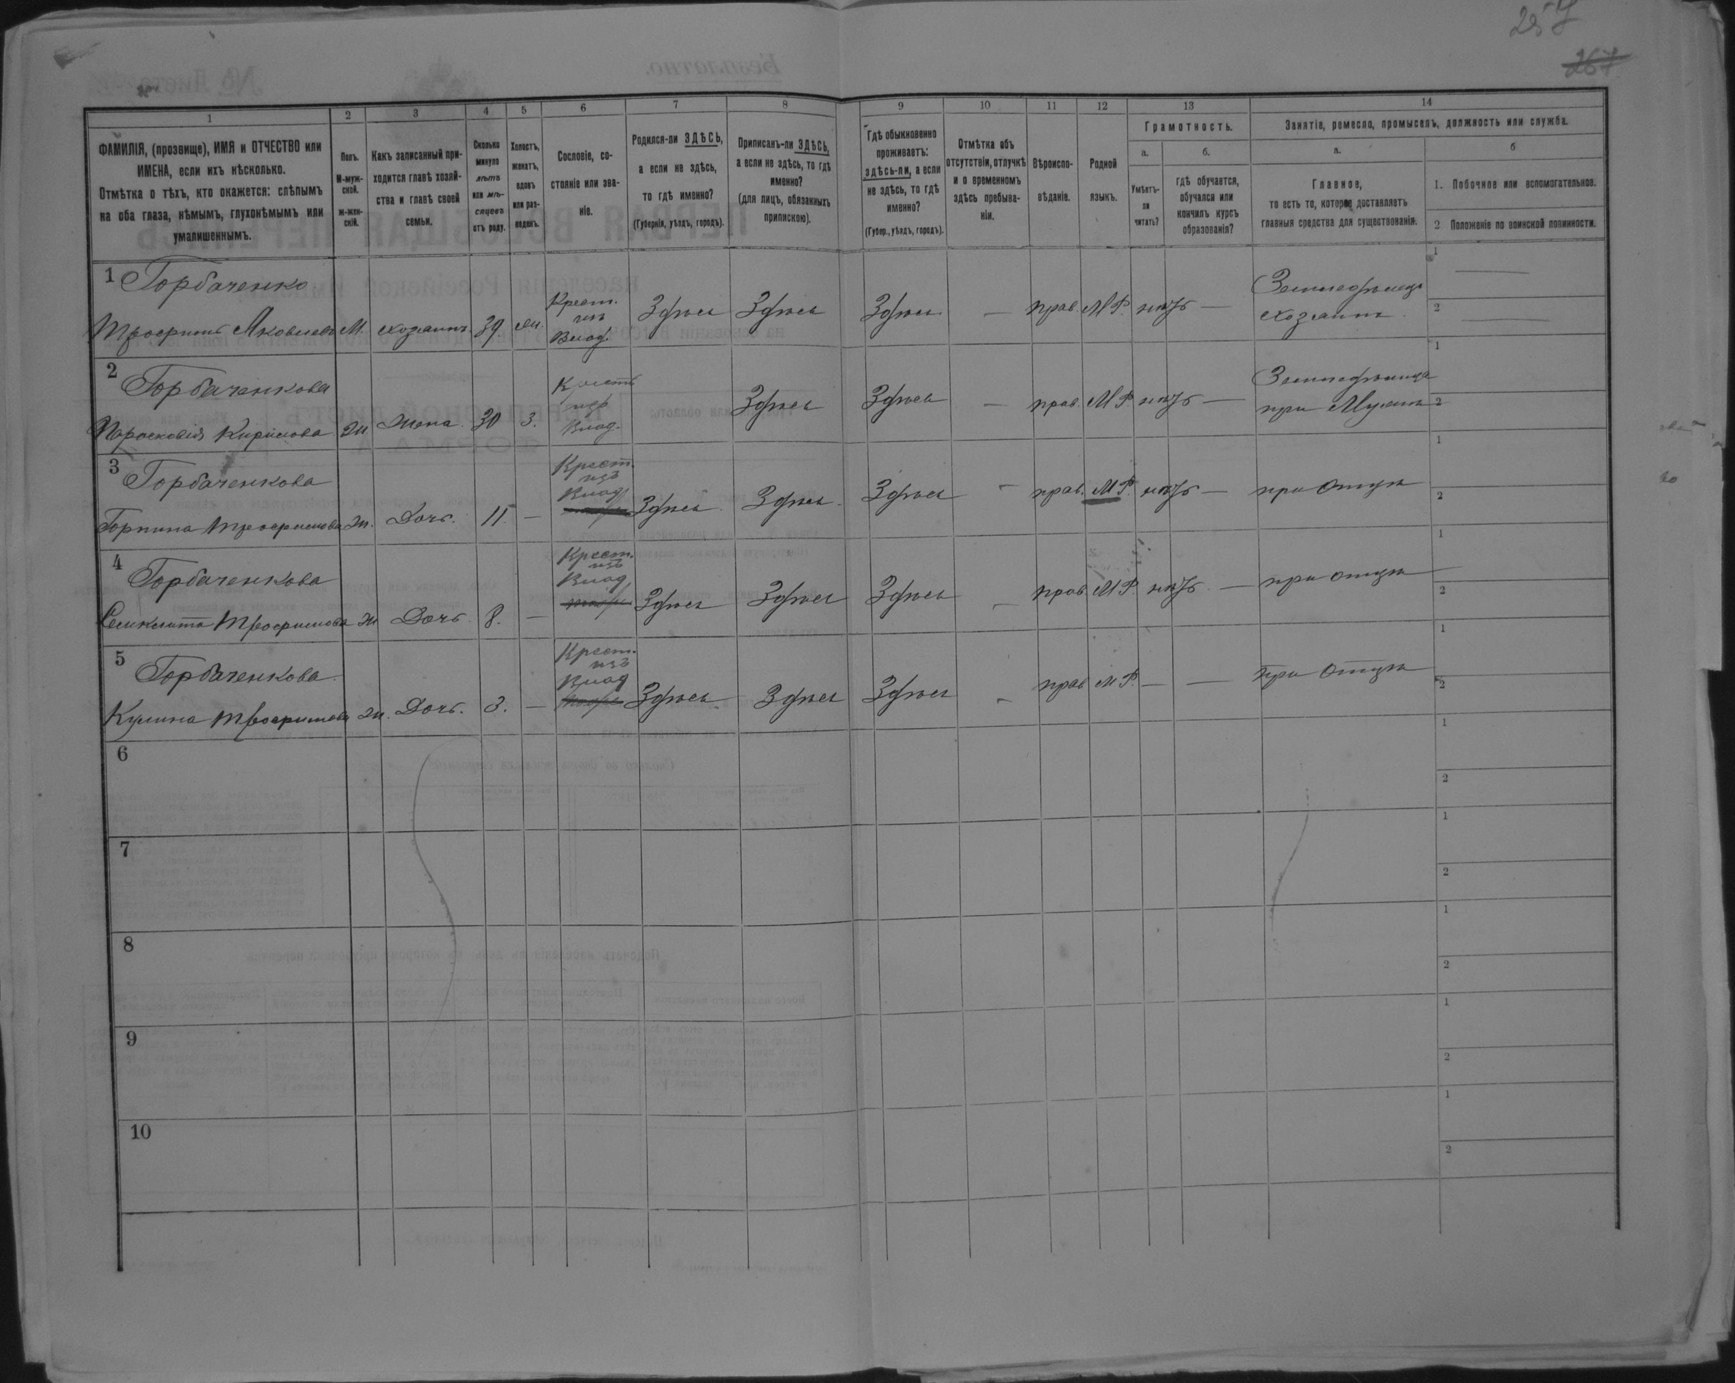 257
267
1 2 3 4 5 6 7 8 9 10 11 12 13 14
ФАМИЛІЯ, (прозвище), ИМЯ и ОТЧЕСТВО или ИМЕНА, если ихъ нѣсколько.
Отмѣтка о тѣхъ, кто окажется: слѣпымъ на оба глаза, нѣмымъ, глухонѣмымъ или умалишеннымъ.
Полъ. М-муж-ской. ж-жен-скій.
Какъ записанный при-ходится главѣ хозяй-ства и главѣ своей семьи.
Сколько минуло лѣтъ или мѣ-сяцевъ отъ роду.
Холостъ, женатъ, вдовъ или раз-веденъ.
Сословіе, со-стояніе или зва-ніе.
Родился-ли ЗДѢСЬ, а если не здѣсь, то гдѣ именно?
(Губернія, уѣздъ, городъ).
Приписанъ-ли ЗДѢСЬ, а если не здѣсь, то гдѣ именно?
(для лицъ, обязанныхъ припискою).
Гдѣ обыкновенно проживаетъ: здѣсь-ли, а если не здѣсь, то гдѣ именно?
(Губер., уѣздъ, городъ).
Отмѣтка объ отсутствіи, отлучкѣ и о временномъ здѣсь пребыва-ніи.
Вѣроиспо-вѣданіе.
Родной языкъ.
Грамотность.
а. б.
Умѣетъ-ли читать?
гдѣ обучается, обучался или кончилъ курсъ образованія?
Занятіе, ремесло, промыселъ, должность или служба.
а. б
Главное, то есть то, которое доставляетъ главныя средства для существованія.
1. Побочное или вспомогательное.
2 Положеніе по воинской повинности.
1 Горбаченко
Трофимъ Яковлевъ М. хозяинъ 39 жен. Крест. изъ Влад. Здѣсь Здѣсь Здѣсь — прав. М Р нѣтъ — Земледѣлецъ хозяинъ 1 — 2 —
2 Горбаченкова
Парасковія Кирилова ж. Жена 30 з. Крест. изъ Влад. Здѣсь Здѣсь — прав. М Р нѣтъ — Земледѣлица при Мужѣ 1 2
3 Горбаченкова
Горпина Трофимова ж. Дочь. 11. — Крест. изъ Влад. Здѣсь Здѣсь. Здѣсь — прав. М Р. нѣтъ — при Отцѣ 1 2
4 Горбаченкова
Трофимова ж Дочь. 8. — Крест. изъ Влад. Здѣсь Здѣсь Здѣсь — прав. М Р. нѣтъ. — при отцѣ 1 2
5 Горбаченкова.
Трофимова ж. Дочь. 3. — Крест. изъ Влад Здѣсь. Здѣсь Здѣсь — прав М Р. — — При Отцѣ 1 2
6 1 2
7 1 2
8 1 2
9 1 2
10 1 2